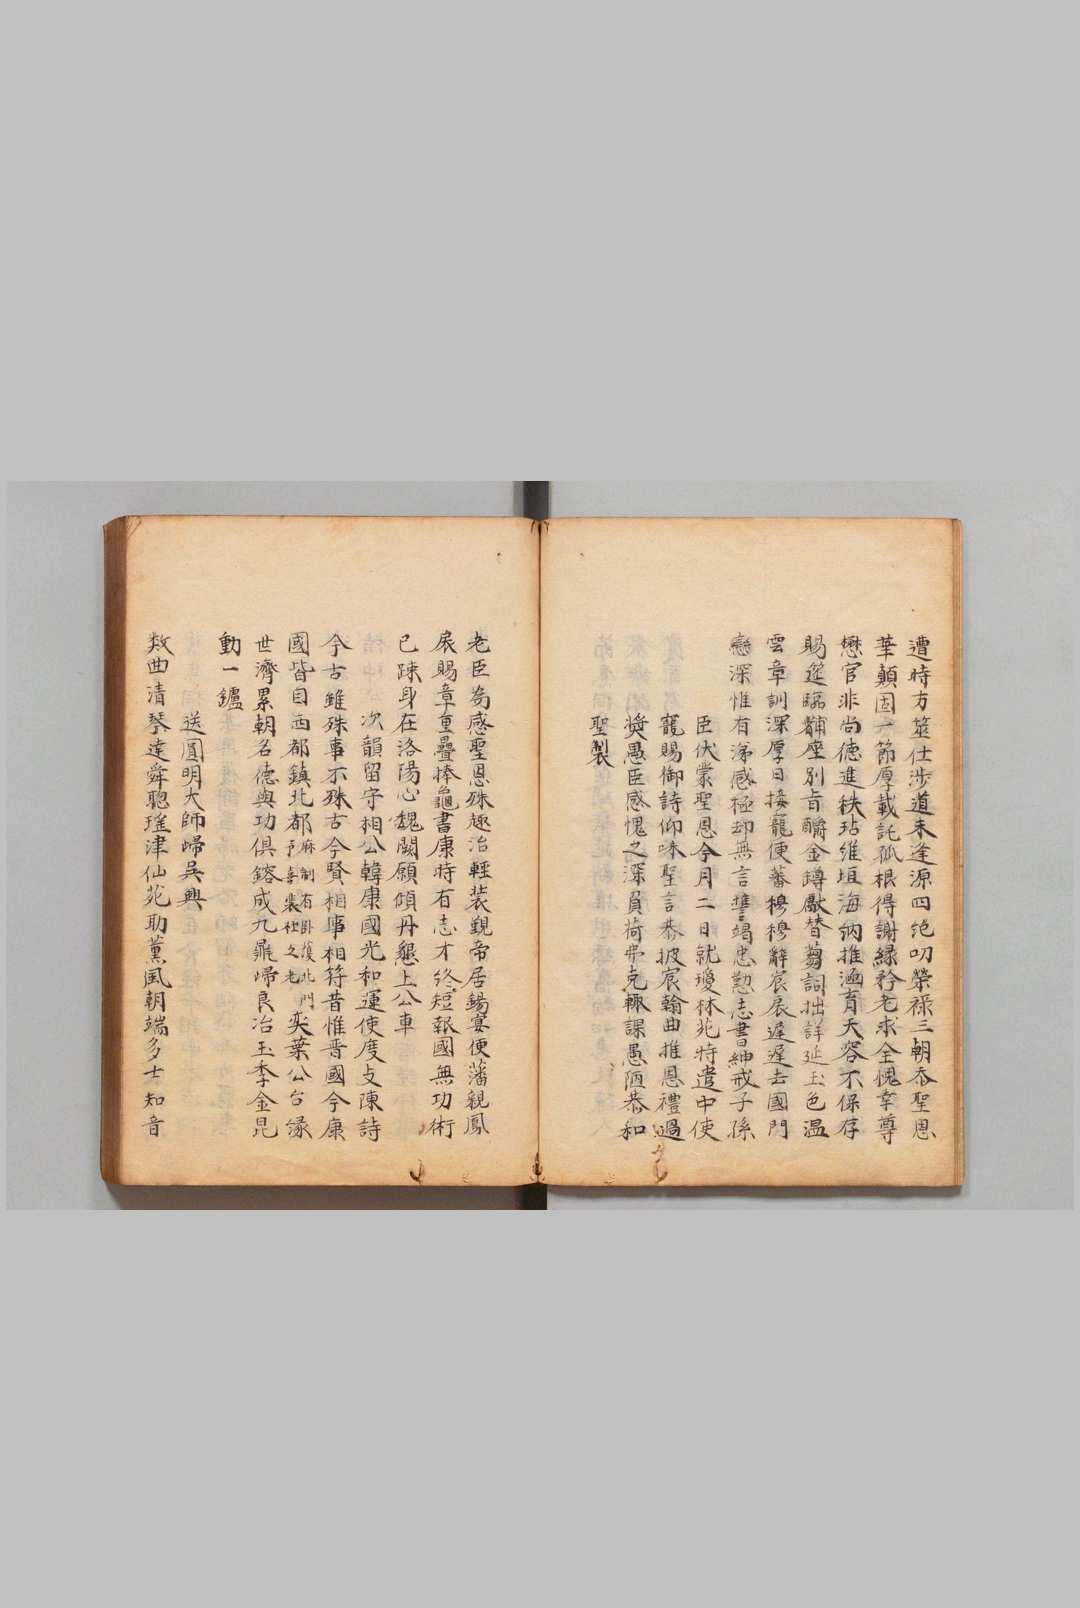 遭時方筮仕涉道未逢源四絶叨榮禄三朝忝聖恩
華顛固一節厚載託孤根得謝緣矜老求全愧幸尊
懋官非尚德進秩玷維垣海納推涵育天容不保存
賜筵臨黼座別旨釂金罇獻替蒭詞拙詳延玉色温
雲章訓深厚日接寵便蕃穆穆辭宸扆遲遲去國門
戀深惟有涕感極却無言誓竭忠懃志書紳戒子孫
臣伏䝉聖恩今月二日就瓊林苑特遣中使
寵賜御詩仰味聖言恭披宸翰曲推恩禮過
奬愚臣感愧之深負荷弗克輙課愚陋恭和
聖製
老臣為感聖恩殊趣治輕装覲帝居錫宴便蕃親鳳
扆賜章重疊捧龜書康時有志才終短報國無功術
已踈身在洛陽心魏闕願傾丹懇上公車
次韻留守相公韓康國光和運使度支陳詩
今古雖殊事不殊古今賢相事相符昔惟晋國今康
國皆自西都鎮北都麻制有卧護北門予喜裴杜之老奕葉公台緣
世濟累朝名德與功俱鎔成九鼎歸良冶玉季金昆
動一鑪
送圓明大師歸吳興
数曲清琴達舜聰瑤津仙苑助薰風朝端多士知音